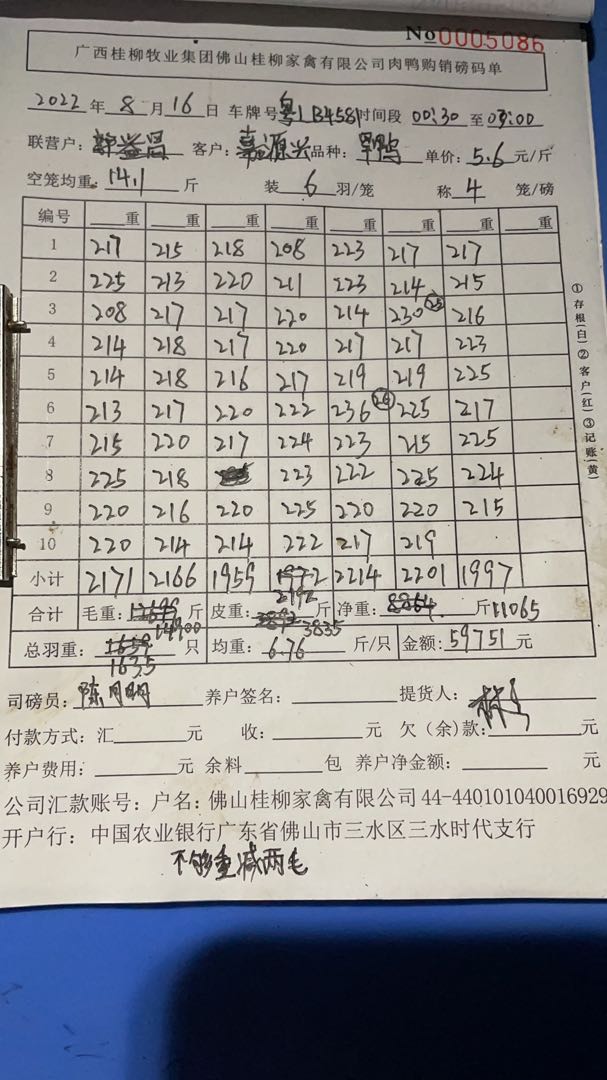 No0005086
广西桂柳牧业集团佛山桂柳家禽有限公司肉鸭购销磅码单
2022年8月16日 车牌号粤LB4581时间段 00:30 至03:00
联营户: 客户: 源兴 品种: 鸭 单价: 5.6 元/斤
空笼均重: 14.1 斤 装 6 羽/笼 称 4 笼/磅
编号 重 重 重 重 重 重 重 重
1 217 215 218 208 223 217 217
2 225 213 220 211 223 214 215
3 208 217 217 220 214 230 25 216
4 214 218 217 220 217 217 223
5 214 218 216 217 219 219 225
6 213 217 220 222 236 26 225 217
7 215 220 217 224 223 215 225
8 225 218 223 222 225 224
9 220 216 220 225 220 220 215
10 220 214 214 222 217 219
小计 2171 2166 1959 1972 2192 2214 2201 1997
合计 毛重: 14900 斤 皮重: 3835 斤 净重: 8864 斤 11065
总羽重: 1659 1635 只 均重: 6.76 斤/只 金额: 59751 元
司磅员: 陈月明 养户签名: 提货人:
付款方式: 汇 元 收: 元 欠(余)款: 元
养户费用: 元 余料 包 养户净金额: 元
公司汇款账号: 户名: 佛山桂柳家禽有限公司 44-440101040016929
开户行: 中国农业银行广东省佛山市三水区三水时代支行
不够重减两毛
①存根(白)②客户(红)③记账(黄)